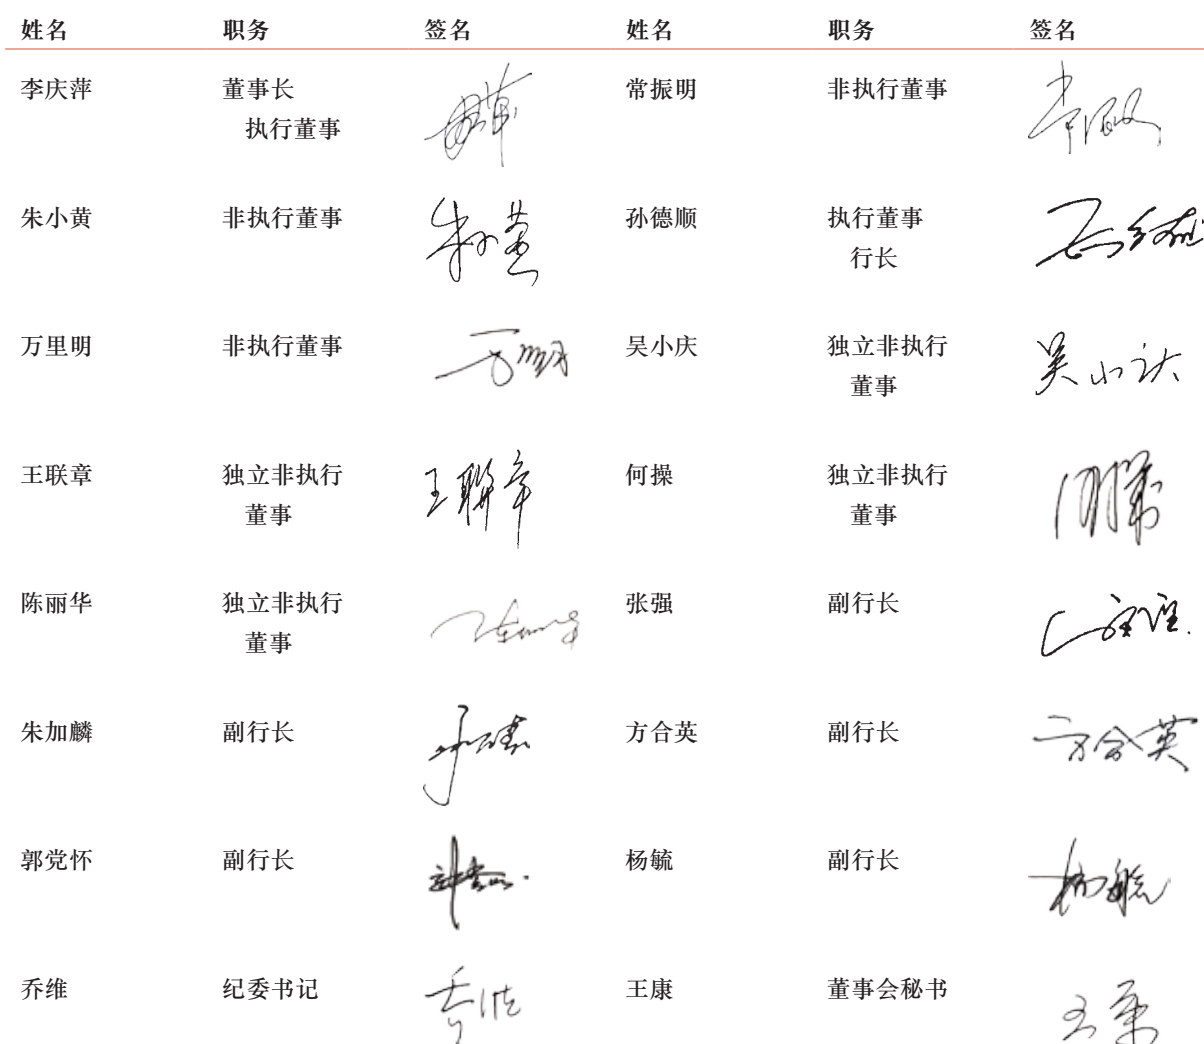 姓名 职务 签名 姓名 职务 签名
李庆萍 董事长 常振明 非执行董事
执行董事
朱小黄 非执行董事 孙德顺 执行董事
行长
万里明 非执行董事 吴小庆 独立非执行
董事
王联章 独立非执行 何操 独立非执行
董事 董事
陈丽华 独立非执行 张强 副行长
董事
朱加麟 副行长 方合英 副行长
郭党怀 副行长 杨毓 副行长
乔维 纪委书记 王康 董事会秘书